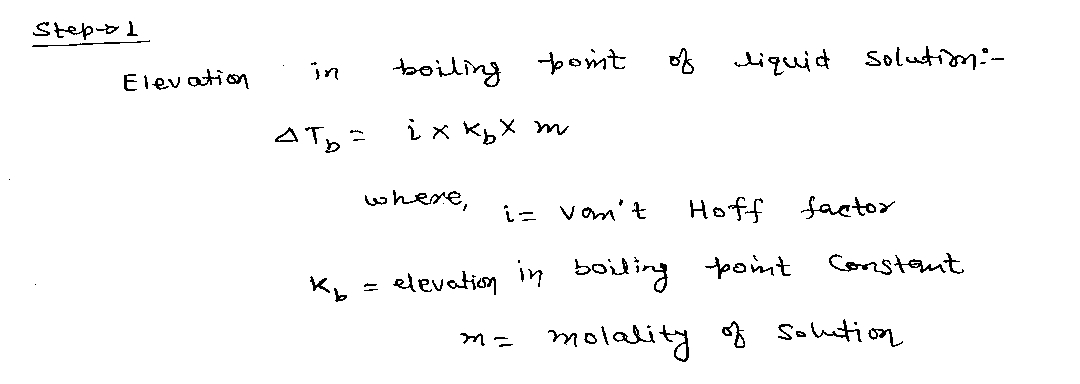 Step→1
Elevation in boiling point of liquid solution:-
ΔT_b = i × K_b × m
where, i = van't Hoff factor
K_b = elevation in boiling point constant
m = molality of solution